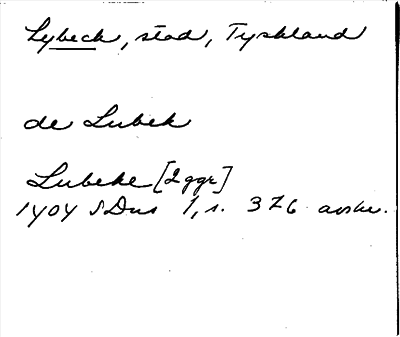 Lybeck, stad, Tyskland
de Lubek
Lubeke [2 ggr]
1404 SDns 1, s. 376 avskr.